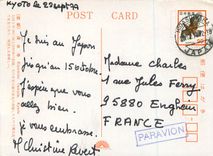 KYOTO LE 2 Sept 77
POST CARD
Je suis au Japon
jusqu'au 15 Octobre.
J'espère que vous
allez bien.
Je vous embrasse.
M Christine
Madame Charles
1 rue Jules Ferry
95880 Enghien
FRANCE
PARAVION